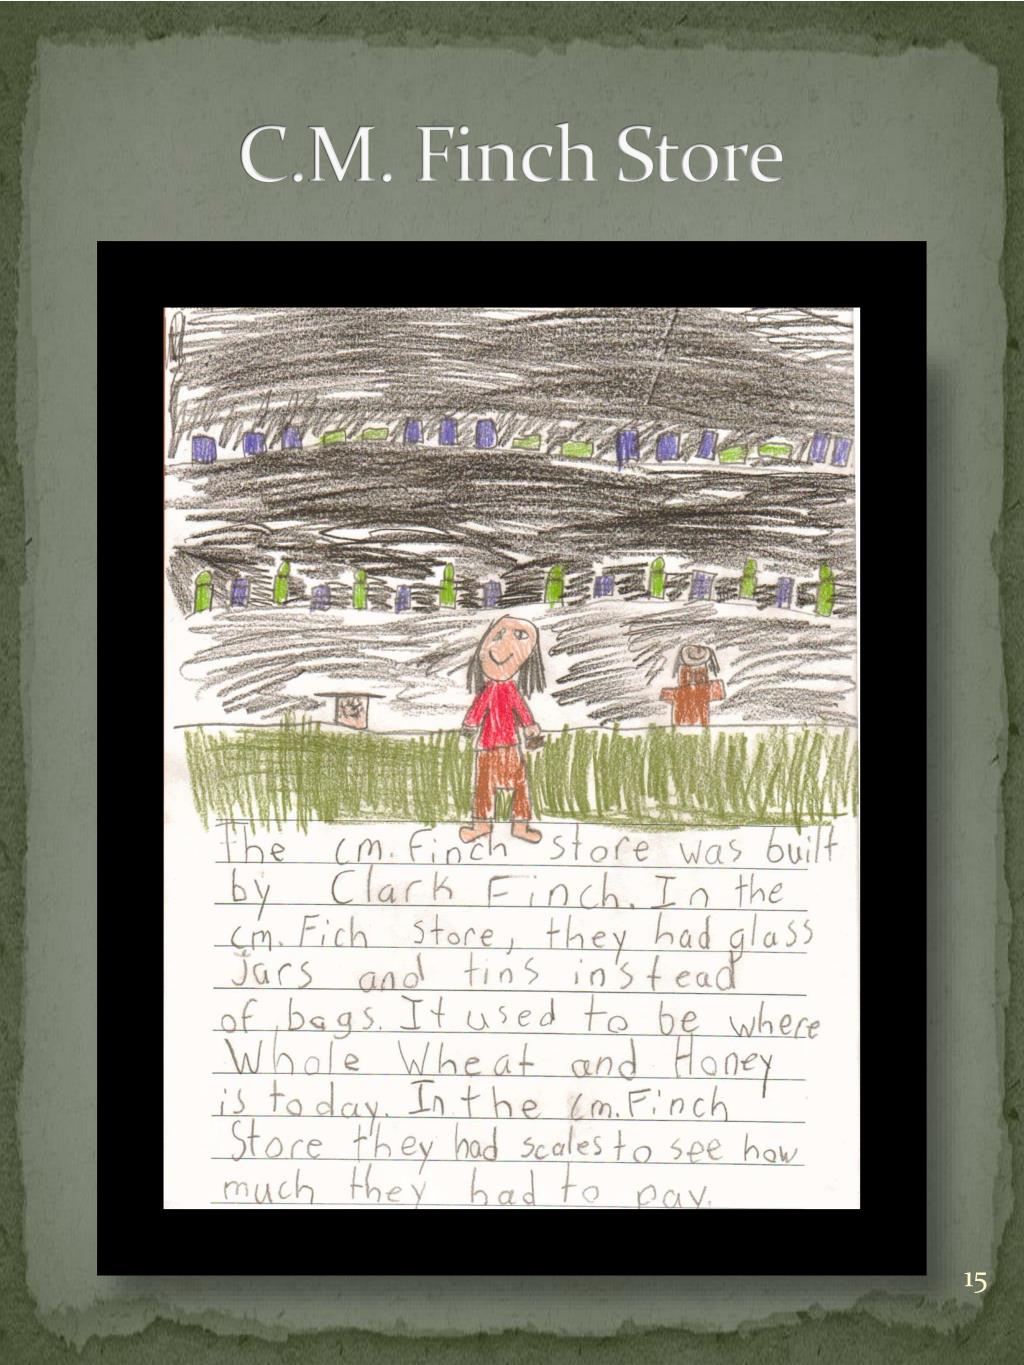 C.M. Finch Store
The cm. Finch store was built
by Clark Finch. In the
cm. Fich Store, they had glass
Jars and tins instead
of bags. It used to be where
Whole Wheat and Honey
is today. In the cm. Finch
Store they had scales to see how
much they had to pay.
15